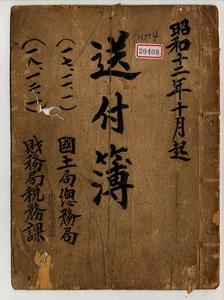 昭和十二年十月起
11514
20408
送付簿
(一七・二・一)
國土局總務局
(一八・一二・一)
財務局稅務課